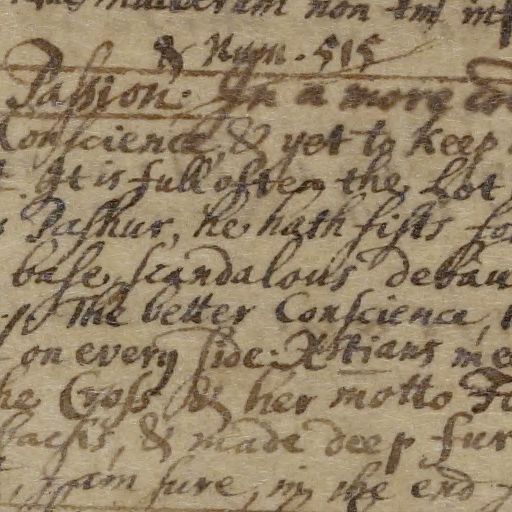 non
& Kyn. 515
Passion. In a more
Conscience, & yet to keep
It is full often the Lot
Pashur, he hath fists fo
base, scandalous debau
The better Conscience,
on every side: Xstians me
he Cross & her motto
backs, & made deep fur
I am sure, in the end